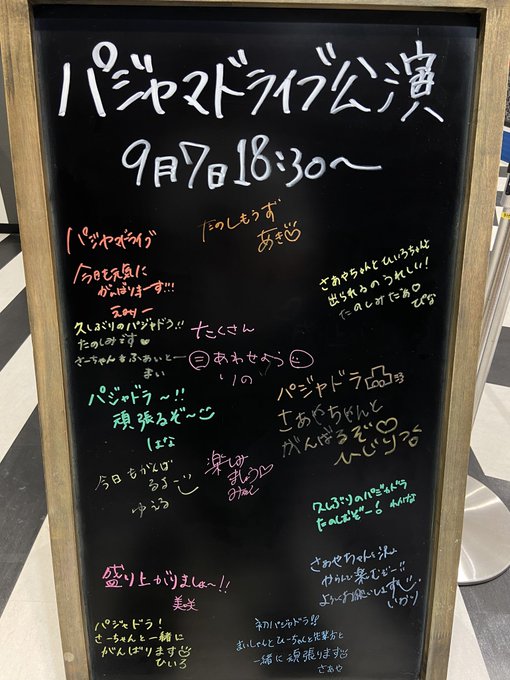 パジャマドライブ公演
9月7日18:30〜
たのしもうず
あき
パジャマドライブ
今日も元気に
がんばりまーす!!!
えみりー
さあやちゃんとひいろちゃんと
出られるのうれしい!
たのしみだあ♡
ぴな
久しぶりのパジャドラ!!
たのしみです♥
さーちゃん
まい
たくさん
あわせのう
りの
パジャドラ〜!!
頑張るぞ〜
はな
パジャドラ
さあやちゃんと
がんばるぞ♡
ひじり
今日もがんば
るよー
ゆえる
楽しみ
ましょう♡
久しぶりのパジャドラ
たのしむぞー!
さあやちゃん
楽むぞー!!
よろしくお願いします
いかり
盛り上がりましょ〜!!
美咲
パジャドラ!
さーちゃんと一緒に
がんばります
ひいろ
初パジャドラ!!
まいしゃんとひーちゃんと
一緒に頑張ります
さあや